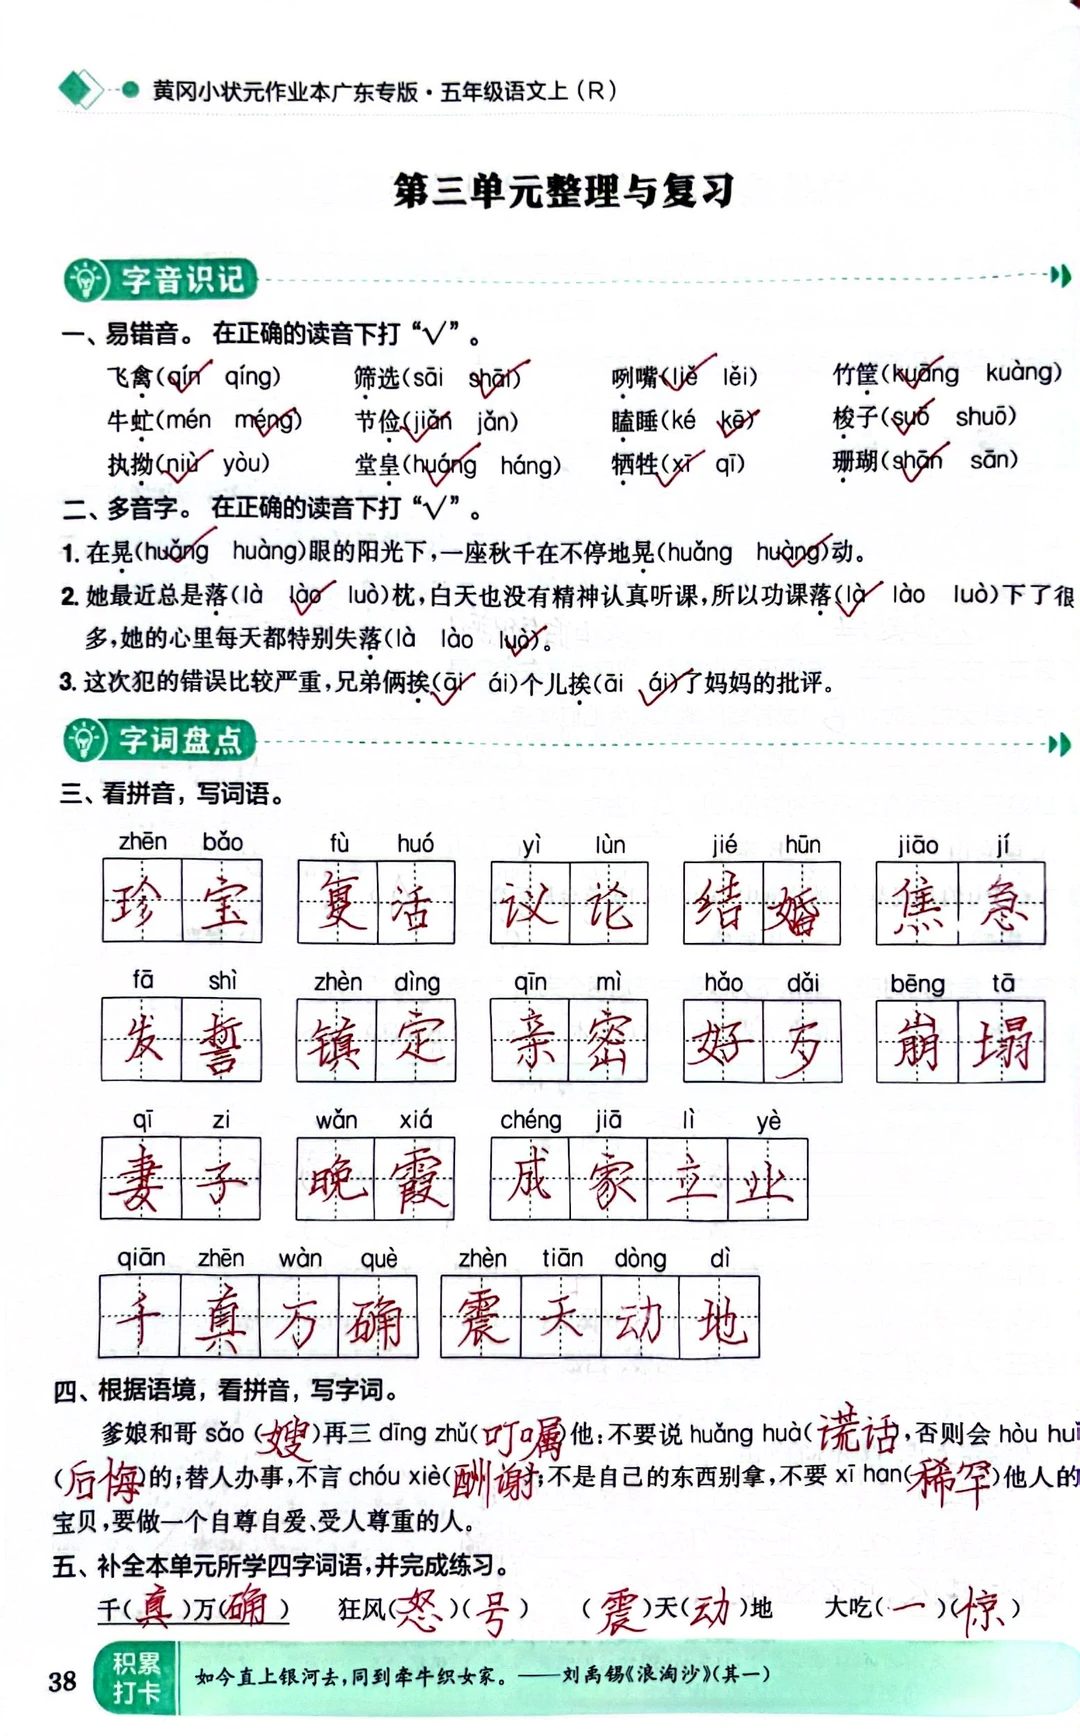 黄冈小状元作业本广东专版·五年级语文上(R)
第三单元整理与复习
字音识记
一、易错音。在正确的读音下打“√”。
飞禽(qín√ qíng) 筛选(sāi shāi√) 咧嘴(liě√ lěi) 竹筐(kuāng√ kuàng)
牛虻(mén méng√) 节俭(jiǎn√ jǎn) 瞌睡(ké kē√) 梭子(suō√ shuō)
执拗(niù√ yòu) 堂皇(huáng√ háng) 牺牲(xī√ qī) 珊瑚(shān√ sān)
二、多音字。在正确的读音下打“√”。
1. 在晃(huǎng√ huàng)眼的阳光下,一座秋千在不停地晃(huǎng huàng√)动。
2. 她最近总是落(là lào√ luò)枕,白天也没有精神认真听课,所以功课落(là√ lào luò)下了很
多,她的心里每天都特别失落(là lào luò√)。
3. 这次犯的错误比较严重,兄弟俩挨(āi√ ái)个儿挨(āi ái√)了妈妈的批评。
字词盘点
三、看拼音，写词语。
zhēn bǎo fù huó yì lùn jié hūn jiāo jí
珍宝 复活 议论 结婚 焦急
fā shì zhèn dìng qīn mì hǎo dǎi bēng tā
发誓 镇定 亲密 好歹 崩塌
qī zi wǎn xiá chéng jiā lì yè
妻子 晚霞 成家立业
qiān zhēn wàn què zhèn tiān dòng dì
千真万确 震天动地
四、根据语境，看拼音，写字词。
爹娘和哥 sǎo (嫂)再三 dīng zhǔ(叮嘱)他:不要说 huǎng huà(谎话),否则会 hòu huǐ
(后悔)的;替人办事,不言 chóu xiè(酬谢);不是自己的东西别拿,不要 xī han(稀罕)他人的
宝贝,要做一个自尊自爱、受人尊重的人。
五、补全本单元所学四字词语,并完成练习。
千(真)万(确) 狂风(怒)(号) (震)天(动)地 大吃(一)(惊)
38 积累打卡 如今直上银河去,同到牵牛织女家。——刘禹锡《浪淘沙》(其一)